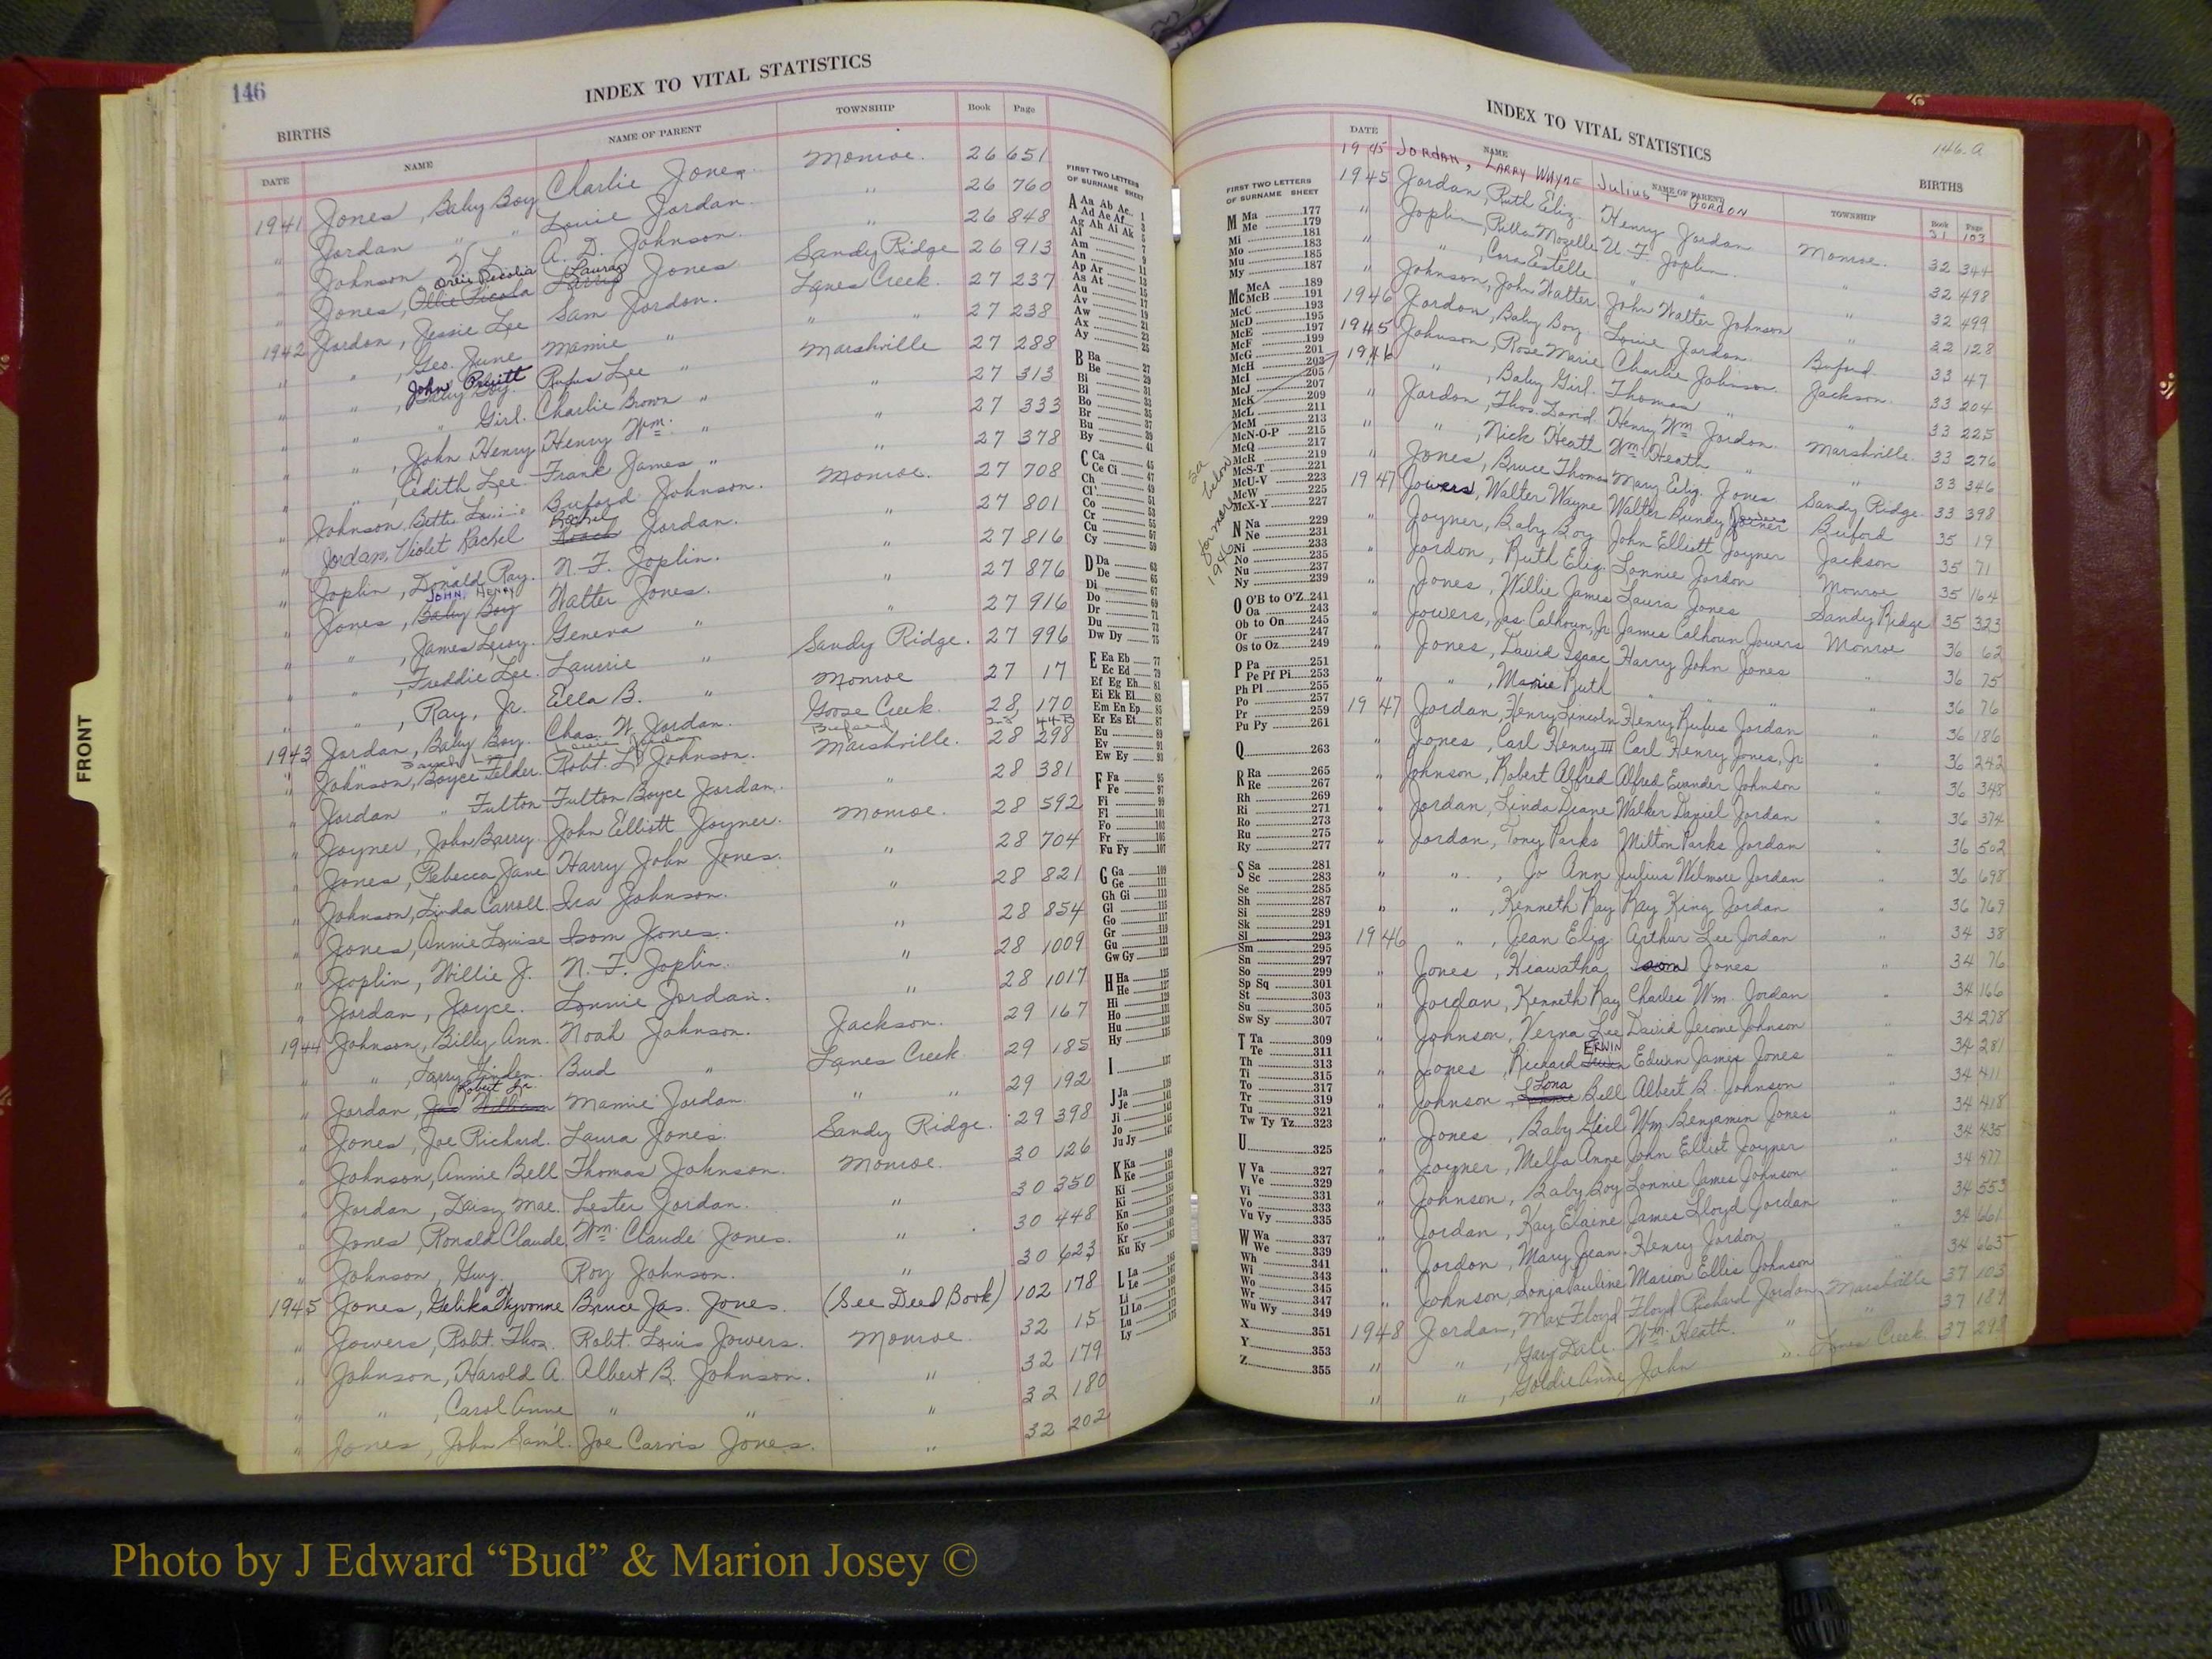 146
INDEX TO VITAL STATISTICS
BIRTHS
DATE NAME NAME OF PARENT TOWNSHIP Book Page
1941 Jones, Baby Boy Charlie Jones Monroe. 26 651
" Jordan " " Louie Jordan. " 26 760
" Johnson A. D. Johnson. " 26 848
" Jones, Ollie Picola Jones Sandy Ridge 26 913
1942 Jordon, Jessie Lee Sam Jordon. Lanes Creek. 27 237
" " , Geo. June Mamie " " " 27 238
" " , John Pruitt Rufus Lee " Marshville 27 288
" " " Girl. Charlie Brown " " 27 313
" " , John Henry Henry Wm. " " 27 333
" " , Edith Lee Frank James " " 27 378
" Johnson, Betty Louise Buford Johnson. Monroe. 27 708
" Jordan, Violet Rachel Rachel Jordan. " 27 801
" Joplin, Donald Ray. N. F. Joplin. " 27 816
" Jones, Baby Boy JOHN HENRY Walter Jones. " 27 876
" " , James Leroy. Geneva " " 27 916
" " , Freddie Lee. Laurie " Sandy Ridge. 27 996
" " , Ray, Jr. Ella B. " Monroe 27 17
1943 Jordan, Baby Boy. Chas. W. Jordan. Goose Creek. 28 170
Buford
" Johnson, Boyce Felder. Robt. L. Johnson. Marshville. 28 298
" Jordan " Fulton Fulton Boyce Jordan. " 28 381
" Joyner, John Barry. John Elliott Joyner. Monroe. 28 592
" Jones, Rebecca Jane Harry John Jones. " 28 704
" Johnson, Linda Carroll. Ira Johnson. " 28 821
" Jones, Annie Louise Isom Jones. " 28 854
" Joplin, Willie J. N. F. Joplin. " 28 1009
" Jordan, Joyce. Lonnie Jordan. " 28 1017
1944 Johnson, Billy Ann. Noah Johnson. Jackson. 29 167
" " , Larry Linden. Bud " Lanes Creek 29 185
" Jordan, Robert Jr. Mamie Jordan. " " 29 192
" Jones, Joe Richard. Laura Jones. Sandy Ridge. 29 398
" Johnson, Annie Bell Thomas Johnson. Monroe. 30 126
" Jordan, Daisy Mae. Lester Jordan. " 30 350
" Jones, Ronald Claude. Wm. Claude Jones. " 30 448
" Johnson, Guy. Roy Johnson. " 30 623
1945 Jones, Bruce Jas. Jones. (See Deed Book) 102 178
" Jowers, Robt. Thos. Robt. Louis Jowers. Monroe. 32 15
" Johnson, Harold A. Albert B. Johnson. " 32 179
" " , Carol Anne " " " 32 180
" Jones, John Sam'l. Joe Carris Jones. " 32 202
FIRST TWO LETTERS
OF SURNAME SHEET
A Aa Ab Ac 1
Ad Ae Af 3
Ag Ah Ai Ak 5
Al 7
Am 9
An
Ap Ar 11
As At 13
Au 15
Av 17
Aw 19
Ax 21
Ay 23
B Ba 27
Be 29
Bi 31
Bl 33
Bo 35
Br 37
Bu 39
By 41
C Ca 45
Ce Ci 47
Ch 49
Cl 51
Co 53
Cr 55
Cu 57
Cy 59
D Da 63
De 65
Di 67
Do 69
Dr 71
Du 73
Dw Dy 75
E Ea Eb 77
Ec Ed 79
Ef Eg Eh 81
Ei Ek El 83
Em En Ep 85
Er Es Et 87
Eu 89
Ev 91
Ew Ey 93
F Fa 95
Fe 97
Fi 99
Fl 101
Fo 103
Fr 105
Fu Fy 107
G Ga 109
Ge 111
Gh Gi 113
Gl 115
Go 117
Gr 119
Gu 121
Gw Gy 123
H Ha 125
He 127
Hi 129
Ho 131
Hu 133
Hy 135
I 137
J Ja 139
Je 141
Ji 143
Jo 145
Ju Jy 147
K Ka 149
Ke
Ki
Kn
Ko
Kr
Ku Ky
L La 165
Le
Li
Ll Lo
Lu
Ly 175
FRONT
INDEX TO VITAL STATISTICS
146-A
BIRTHS
DATE NAME NAME OF PARENT TOWNSHIP Book Page
FIRST TWO LETTERS
OF SURNAME SHEET
M Ma 177
Me 179
Mi 181
Mo 183
Mu 185
My 187
Mc McA 189
McB 191
McC 193
McD 195
McE 197
McF 199
McG 201
McH 203
McI 205
McJ 207
McK 209
McL 211
McM 213
McN-O-P 215
McQ 217
McR 219
McS-T 221
McU-V 223
McW 225
McX-Y 227
N Na 229
Ne 231
Ni 233
No 235
Nu 237
Ny 239
O O'B to O'Z 241
Oa 243
Ob to On 245
Or 247
Os to Oz 249
P Pa 251
Pe Pf Pi 253
Ph Pl 255
Po 257
Pr 259
Pu Py 261
Q 263
R Ra 265
Re 267
Rh 269
Ri 271
Ro 273
Ru 275
Ry 277
S Sa 281
Sc 283
Se 285
Sh 287
Si 289
Sk 291
Sl 293
Sm 295
Sn 297
So 299
Sp Sq 301
St 303
Su 305
Sw Sy 307
T Ta 309
Te 311
Th 313
Ti 315
To 317
Tr 319
Tu 321
Tw Ty Tz 323
U 325
V Va 327
Ve 329
Vi 331
Vo 333
Vu Vy 335
W Wa 337
We 339
Wh 341
Wi 343
Wo 345
Wr 347
Wu Wy 349
X 351
Y 353
Z 355
see below for more 1946
1945 JORDAN, LARRY WAYNE Julius T JORDON 31 103
1945 Jordan, Ruth Eliz. Henry Jordan Monroe. 32 344
" Joplin, Rilla Mozelle U. F. Joplin " 32 498
" " , Cora Estelle " " " 32 499
" Johnson, John Walter. John Walter Johnson 32 128
1946 Jordon, Baby Boy Louie Jordan. Buford. 33 47
1945 Johnson, Rose Marie Charlie Johnson. Jackson. 33 204
1946 " , Baby Girl. Thomas " " 33 225
" Jordon, Thos. David Henry Wm. Jordon. Marshville. 33 276
" " , Nick Heath Wm. Heath " " 33 346
" Jones, Bruce Thomas Mary Eliz. Jones Sandy Ridge. 33 398
1947 Jowers, Walter Wayne Walter Bundy Jowers Buford 35 19
" Joyner, Baby Boy John Elliott Joyner Jackson 35 71
" Jordon, Ruth Eliz. Lonnie Jordon Monroe 35 164
" Jones, Willie James Laura Jones Sandy Ridge 35 323
" Jowers, Jas. Calhoun, Jr. James Calhoun Jowers Monroe 36 62
" Jones, David Isaac Harry John Jones " 36 75
" " , Marie Ruth " " " 36 76
1947 Jordan, Henry Lincoln Henry Rufus Jordan " 36 186
" Jones, Carl Henry III Carl Henry Jones, Jr. " 36 242
" Johnson, Robert Alfred Alfred Evander Johnson " 36 348
" Jordan, Linda Diane Walker Daniel Jordan " 36 374
" Jordan, Tony Parks Milton Parks Jordan " 36 502
" " , Jo Ann Julius Wilmore Jordan " 36 698
" " , Kenneth Ray Ray King Jordan " 36 769
1946 " , Jean Eliz Arthur Lee Jordan " 34 38
" Jones, Hiawatha Isom Jones " 34 76
" Jordan, Kenneth Ray Charles Wm. Jordan " 34 166
" Johnson, Verna Lee David Jerome Johnson " 34 278
" Jones, Richard ERWIN Edwin James Jones " 34 281
" Johnson, Lona Bell Albert B. Johnson " 34 411
" Jones, Baby Girl Wm. Benjamin Jones " 34 418
" Joyner, Melfa Anne John Elliot Joyner " 34 435
" Johnson, Baby Boy Lonnie James Johnson " 34 477
" Jordan, Kay Elaine James Lloyd Jordan " 34 553
" Jordon, Mary Jean Henry Jordon " 34 661
" Johnson, Sonja Pauline Marion Ellis Johnson " 34 663
1948 Jordan, Max Floyd Floyd Richard Jordan Marshville 37 103
" " , Gary Dale. Wm. Heath. " " 37 187
" " , Goldie Anne John " Lanes Creek 37 298
Photo by J Edward “Bud” & Marion Josey ©